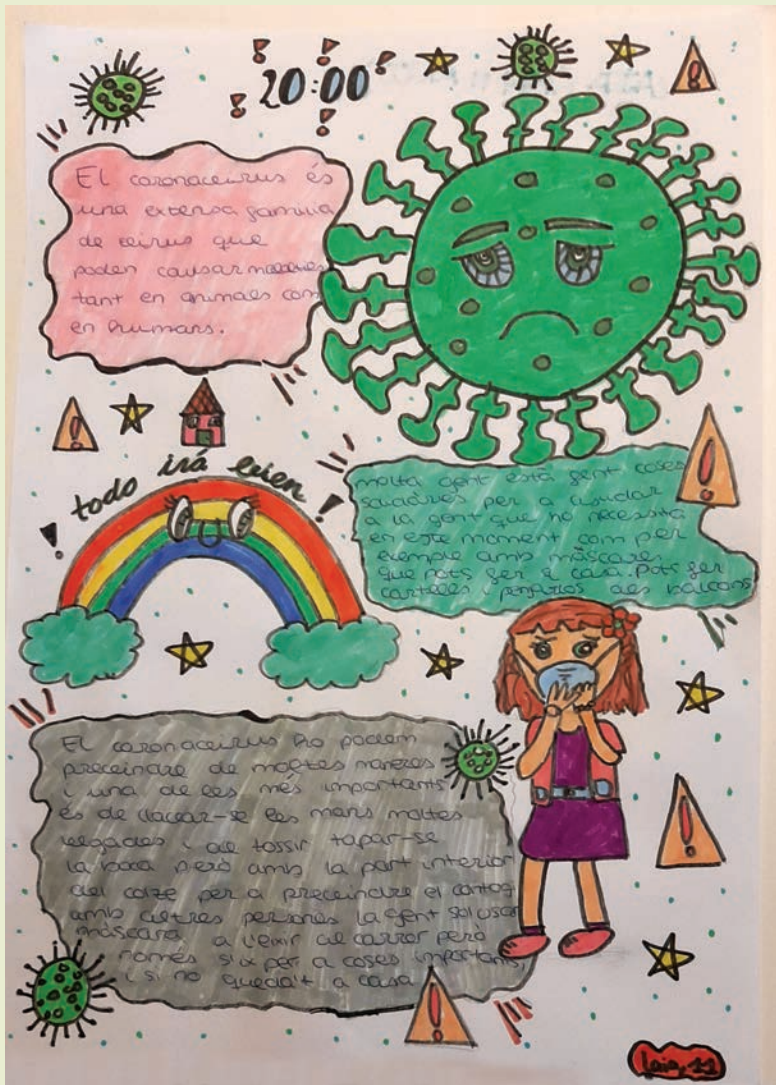 20:00
El coronavirus és
una extensa família
de virus que
poden causar malalties
tant en animals com
en humans.
¡todo irá bien!
molta gent està fent coses
solidàries per a ajudar
a la gent que ho necessita
en este moment com per
exemple amb màscares
que pots fer a casa. Pots fer
cartells i penjarlos als balcons
El coronavirus ho podem
previndre de moltes maneres
i una de les més importants
és de llavar-se les mans moltes
vegades i al tossir tapar-se
la boca però amb la part interior
del colze per a previndre el contagi
amb altres persones la gent sol usar
màscara a l'eixir al carrer però
només s'ix per a coses importants,
i si no queda't a casa
Laia, 11